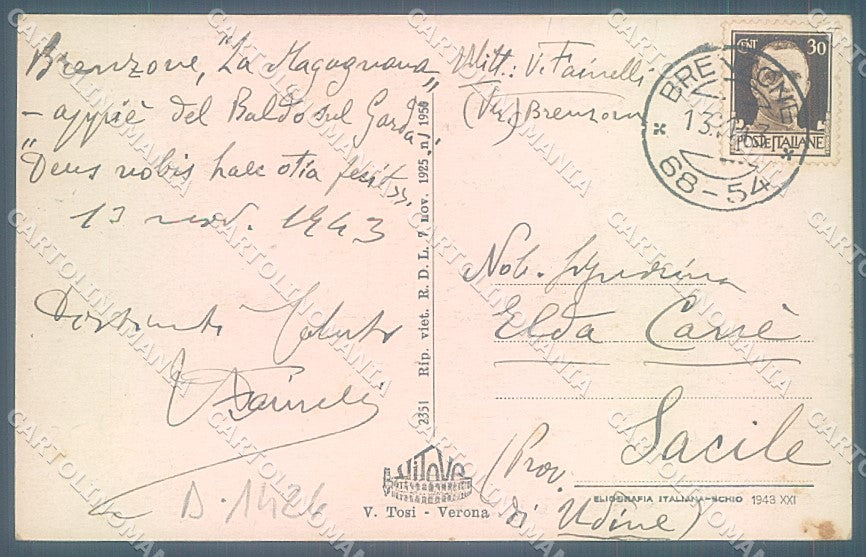 Brenzone, "La Magugnana"
- appiè del Baldo sul Garda.
"Deus nobis haec otia fecit".
13 nov. 1943
Saluti
V Fainelli
D. 1424
Mitt: V. Fainelli
(Ver.) Brenzone
CENT. 30
POSTE ITALIANE
BRENZONE
13.
68-54
2351 Rip. viet. R. D. L. 7 nov. 1925 n/ 1950
Nob. Signorina
Elda Carrè
Sacile
(Prov.
di Udine)
VITOVE
V. Tosi - Verona
ELIOGRAFIA ITALIANA-SCHIO 1943 XXI
CARTOLINOMANIA